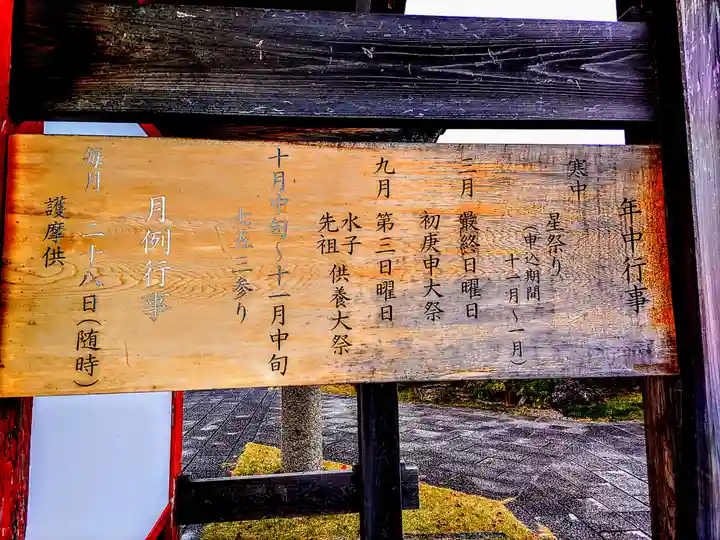 年中行事
寒中
星祭り
(申込期間
十一月～一月)
三月 最終日曜日
初庚申大祭
九月 第三日曜日
水子
先祖 供養大祭
十月中旬～十一月中旬
七五三参り
月例行事
毎月 二十八日(随時)
護摩供